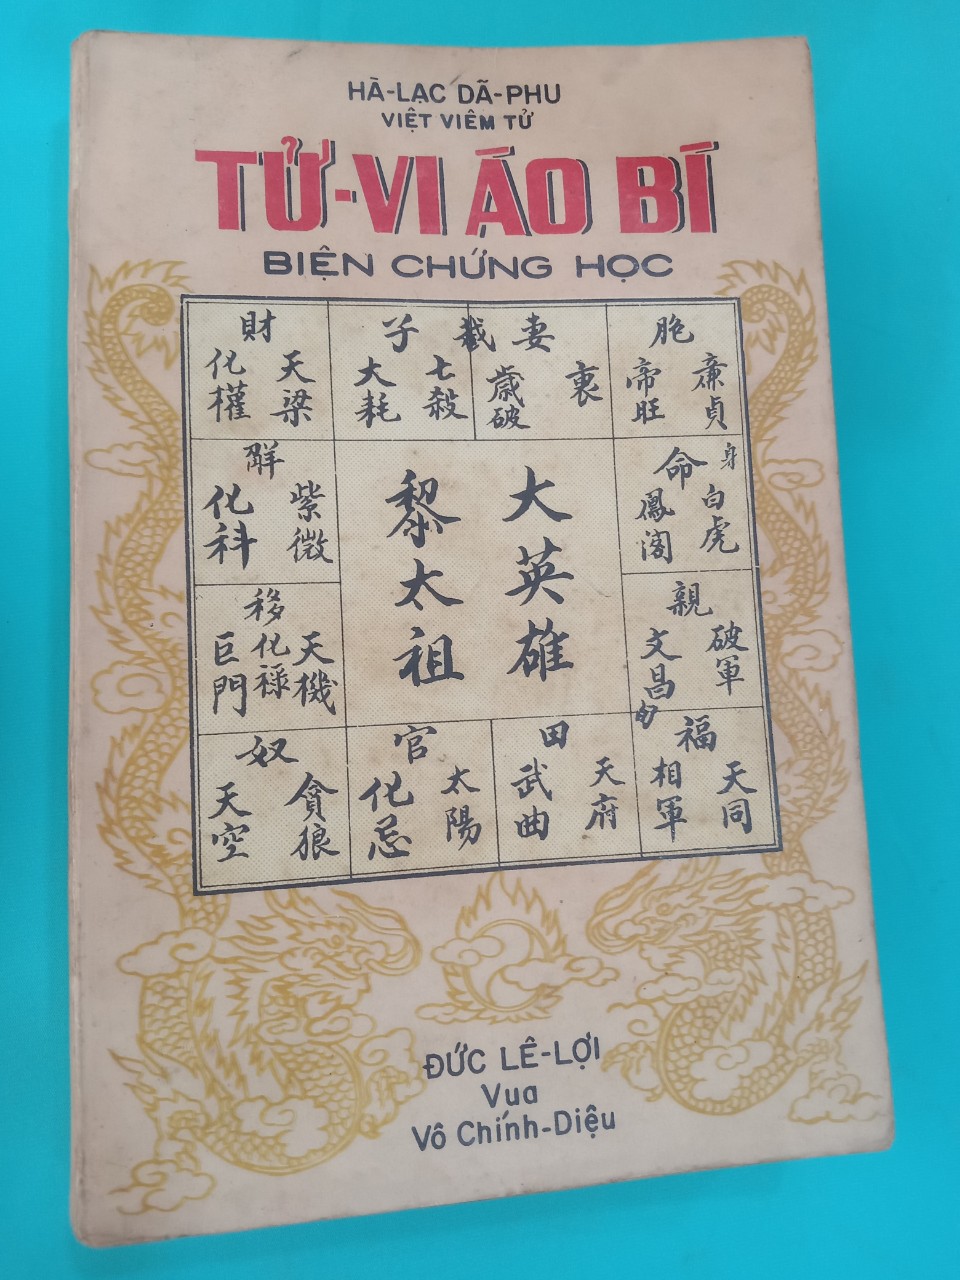 HÀ-LẠC DÃ-PHU
VIỆT VIÊM TỬ
TỬ-VI ÁO BÍ
BIỆN CHỨNG HỌC
財
天梁
化權
子
七殺
大耗
截
妻
衰
歲破
胞
廉貞
帝旺
解
紫微
化科
大英雄
黎太祖
命
身
白虎
鳳閣
移
天機
化祿
巨門
親
破軍
文昌
旬
奴
貪狼
天空
官
太陽
化忌
田
天府
武曲
福
天同
相軍
ĐỨC LÊ-LỢI
Vua
Vô Chính-Diệu